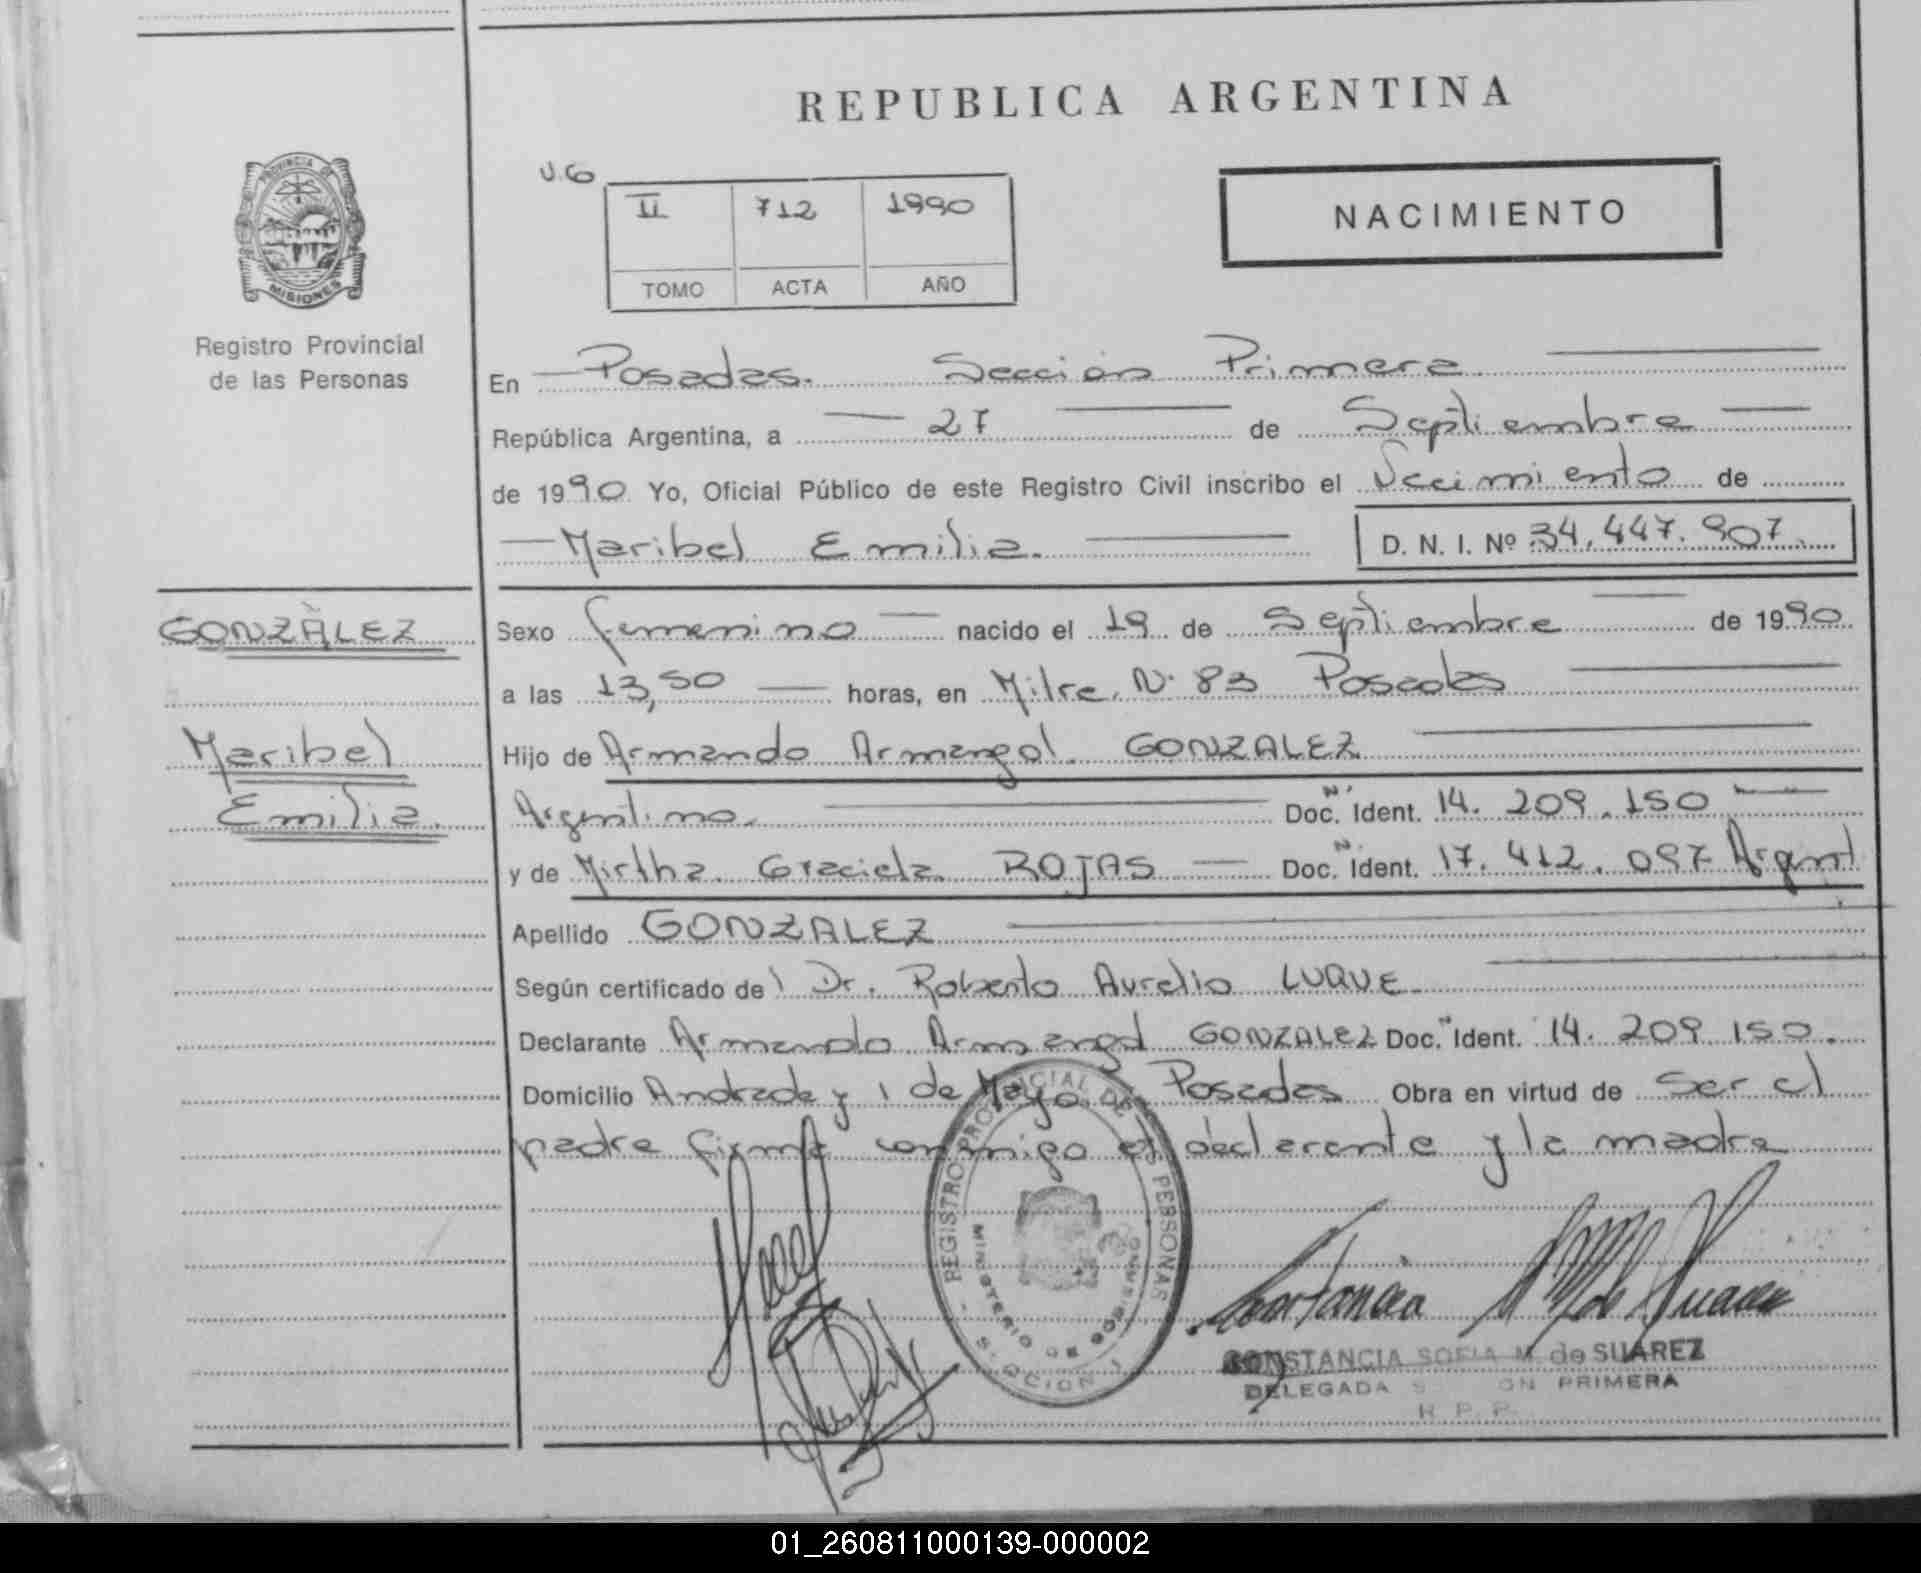 REPUBLICA ARGENTINA
PROVINCIA DE
MISIONES
Registro Provincial
de las Personas
U.G
II 712 1990
TOMO ACTA AÑO
NACIMIENTO
En Posadas. Sección Primera
República Argentina, a 27 de Septiembre
de 1990 Yo, Oficial Público de este Registro Civil inscribo el Nacimiento de
Maribel Emilia. D. N. I. Nº 34.447.907.
GONZÀLEZ
Maribel
Emilia.
Sexo femenino nacido el 19 de Septiembre de 1990
a las 13,50 horas, en Mitre. Nº 83 Posadas
Hijo de Armando Armangol. GONZALEZ
Argentino. Doc. Nº Ident. 14.209.150
y de Mirtha Graciela ROJAS Doc. Nº Ident. 17.412.097 Argent
Apellido GONZALEZ
Según certificado de Dr. Roberto Aurelio LUQUE
Declarante Armando Armangol GONZALEZ Doc. Nº Ident. 14.209.150.
Domicilio Andrade y 1 de Mayo Posadas Obra en virtud de ser el
padre firma conmigo el declarante y la madre
REGISTRO PROVINCIAL DE LAS PERSONAS
MINISTERIO DE GOBIERNO
CONSTANCIA SOFIA M. de SUAREZ
DELEGADA PRIMERA
R. P. P.
01_260811000139-000002